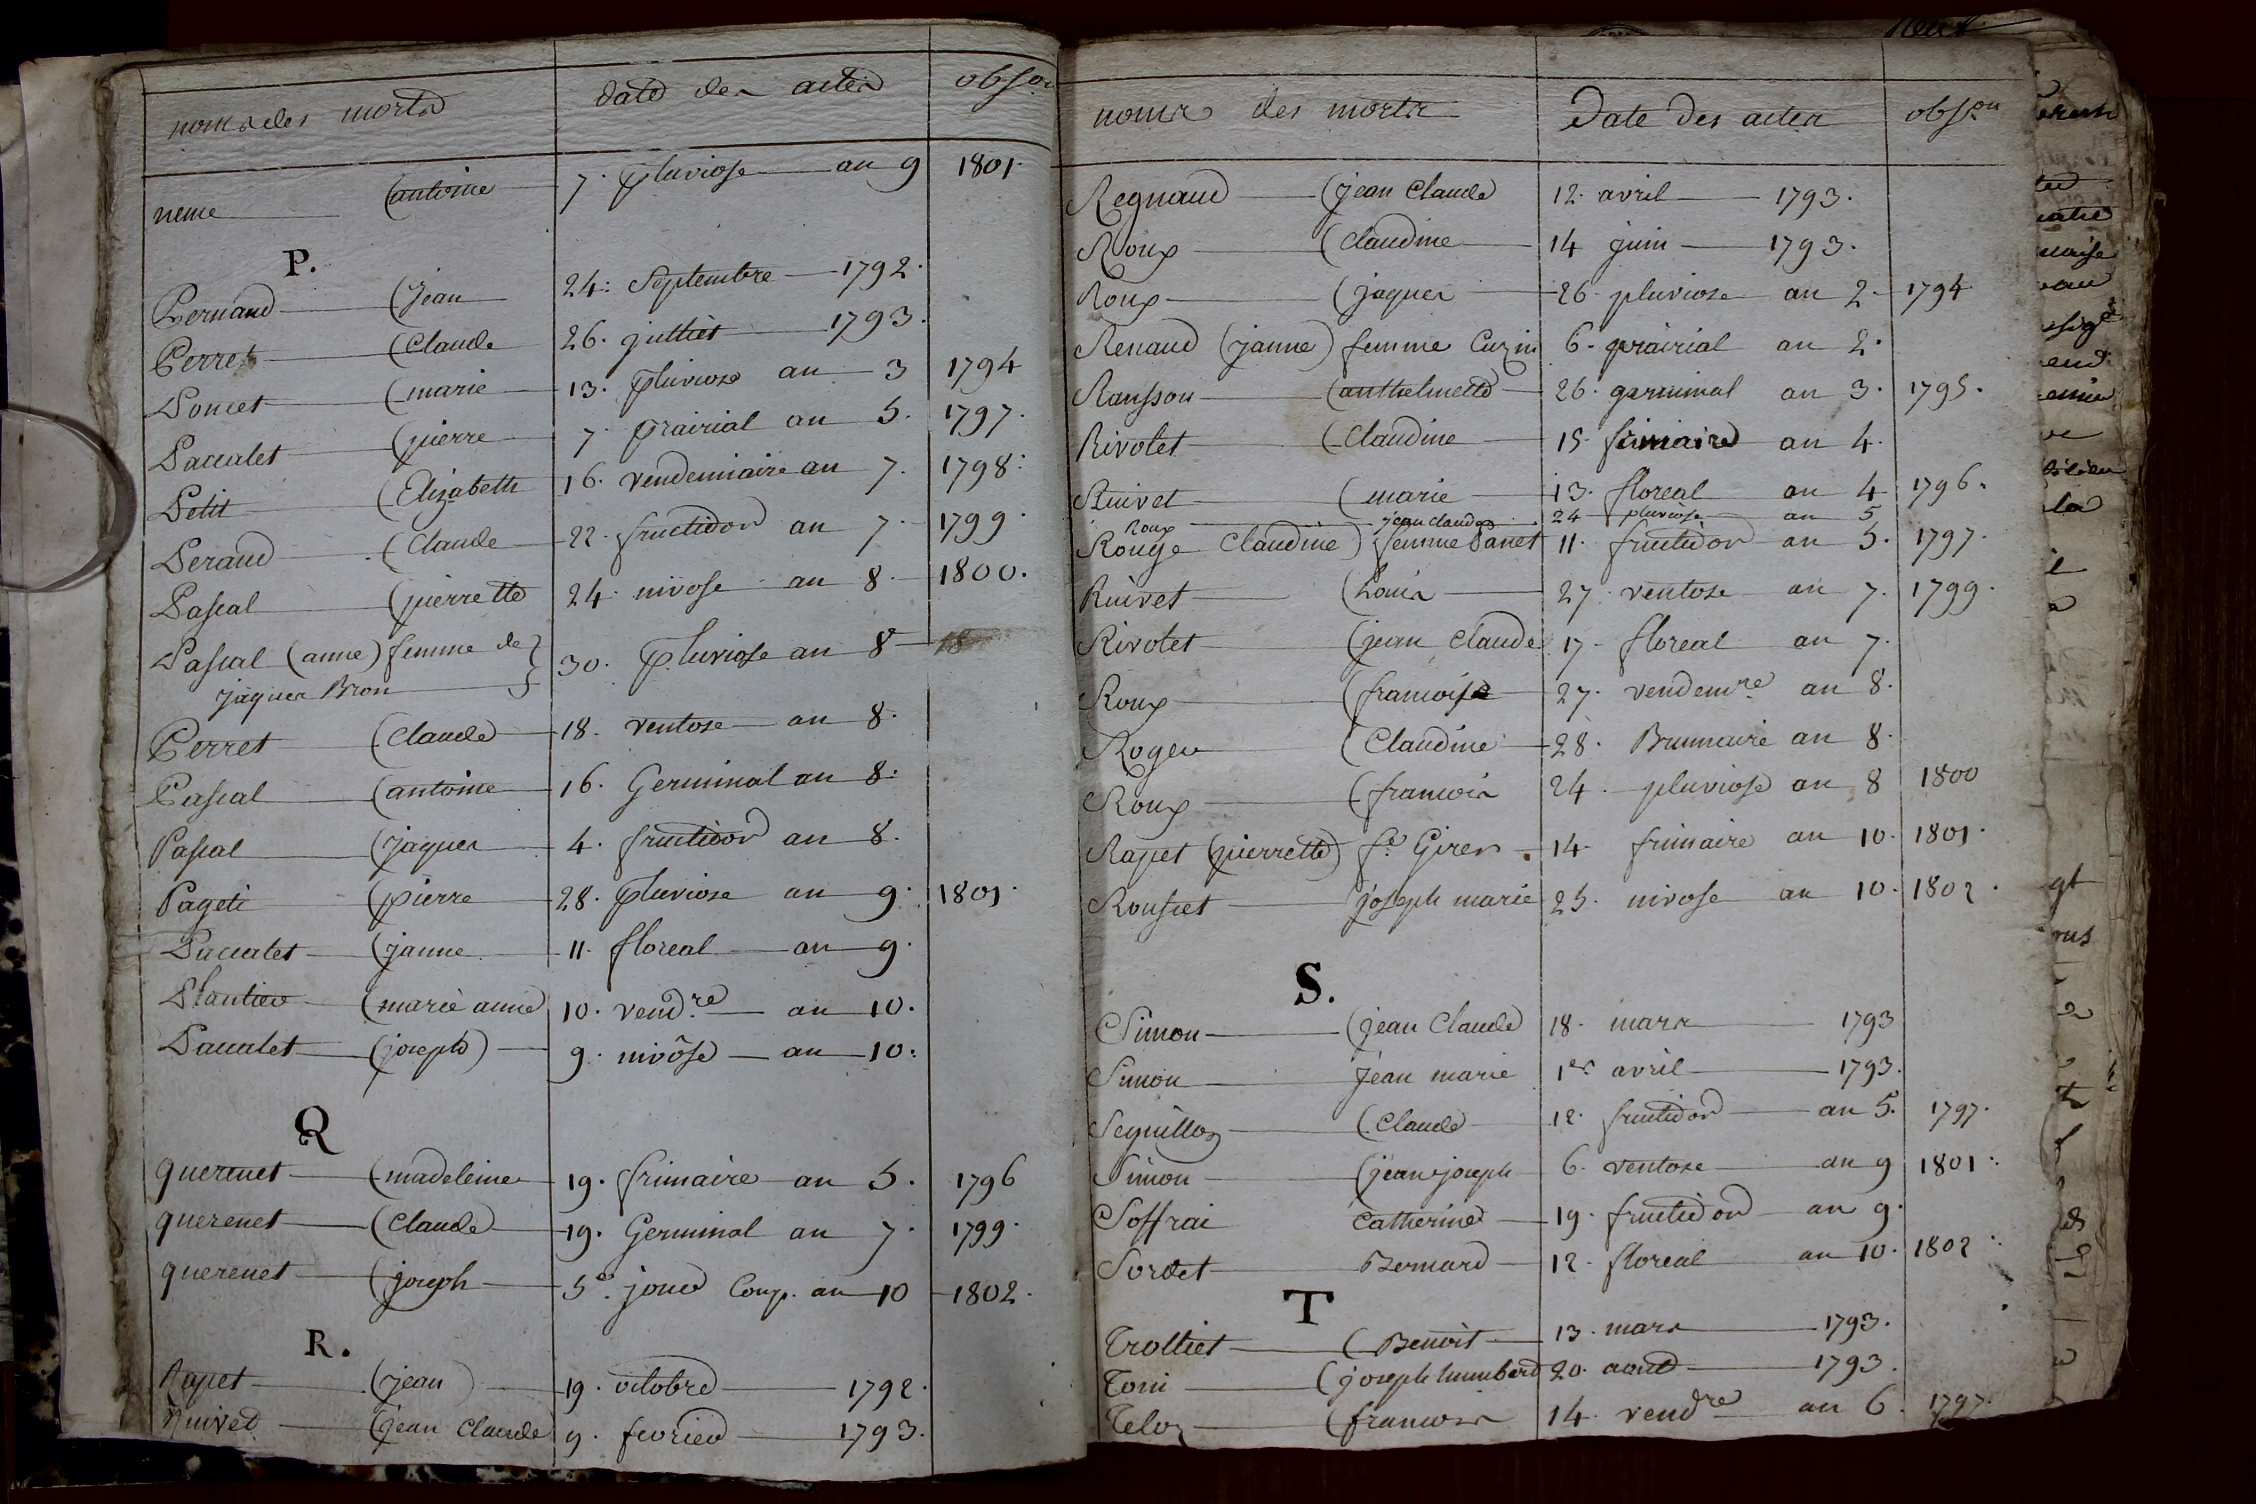 noms des morts date des actes obs.on
neme (antoine 7. pluviose an 9 1801.
P.
Pernand (Jean 24. Septembre 1792.
Perret (Claude 26. julliet 1793.
Poncet (marie 13. pluviose an 3 1794
Paccalet (pierre 7. prairial an 5. 1797.
Petit (Elizabeth 16. vendemiaire an 7. 1798.
Peraud (Claude 22. fructidor an 7. 1799.
Pascal (pierrette 24. nivose an 8. 1800.
Pascal (anne) femme de } 30. pluviose an 8 18
jaques Bron
Perret (Claude 18. ventose an 8.
Pascal (antoine 16. Germinal an 8.
Pascal (jaques 4. fructidor an 8.
Pageti (pierre 28. pluviose an 9. 1801.
Paccalet (janne 11. floreal an 9.
Plantier (marie anne 10. vend.re an 10.
Paccalet (joseph) 9. nivôse an 10.
Q
querenet (madeleine 19. frimaire an 5. 1796
querenet (Claude 19. Germinal an 7. 1799.
querenet (joseph 5e. jour Comp. an 10 1802.
R.
Rapet (jean) 19. octobre 1792.
Ruivet (jean Claude 9. fevrier 1793.
noms des morts Date des actes obs.on
Regnaud (jean Claude 12. avril 1793.
Roux (Claudine 14 juin 1793.
Roux (jaques 26. pluviose an 2. 1794
Renaud (janne) femme Cuzin 6. prairial an 2.
Ransson (anthelmette 26. germinal an 3. 1795.
Rivolet (Claudine 15. frimaire an 4.
Ruivet (marie 13. floreal an 4 1796.
Roux jean claude 24 pluviose an 5
Rouge Claudine) femme Panet 11. fructidor an 5. 1797.
Ruivet (Louis 27. ventose an 7. 1799.
Rivolet (jean Claude 17. floreal an 7.
Roux (francoise 27. vendem.re an 8.
Roger (Claudine 28. Brumaire an 8.
Roux (francois 24. pluviose an 8 1800
Rapet (pierrette) fe. Girer 14. frimaire an 10. 1801.
Rousset joseph marie 25. nivose an 10. 1802.
S.
Simon (jean Claude 18. mars 1793
Simon jean marie 1er avril 1793.
Seguilloz (Claude 12. fructidor an 5. 1797.
Simon (jean joseph 6. ventose an 9 1801.
Soffrai Catherine 19. fructidor an 9.
Sordet Bernard 12. floreal an 10. 1802
T
Trolliet (Benoit 13. mars 1793.
Toni (joseph humberd 20. aout 1793.
Teloz (francois 14. vend.re an 6. 1797.